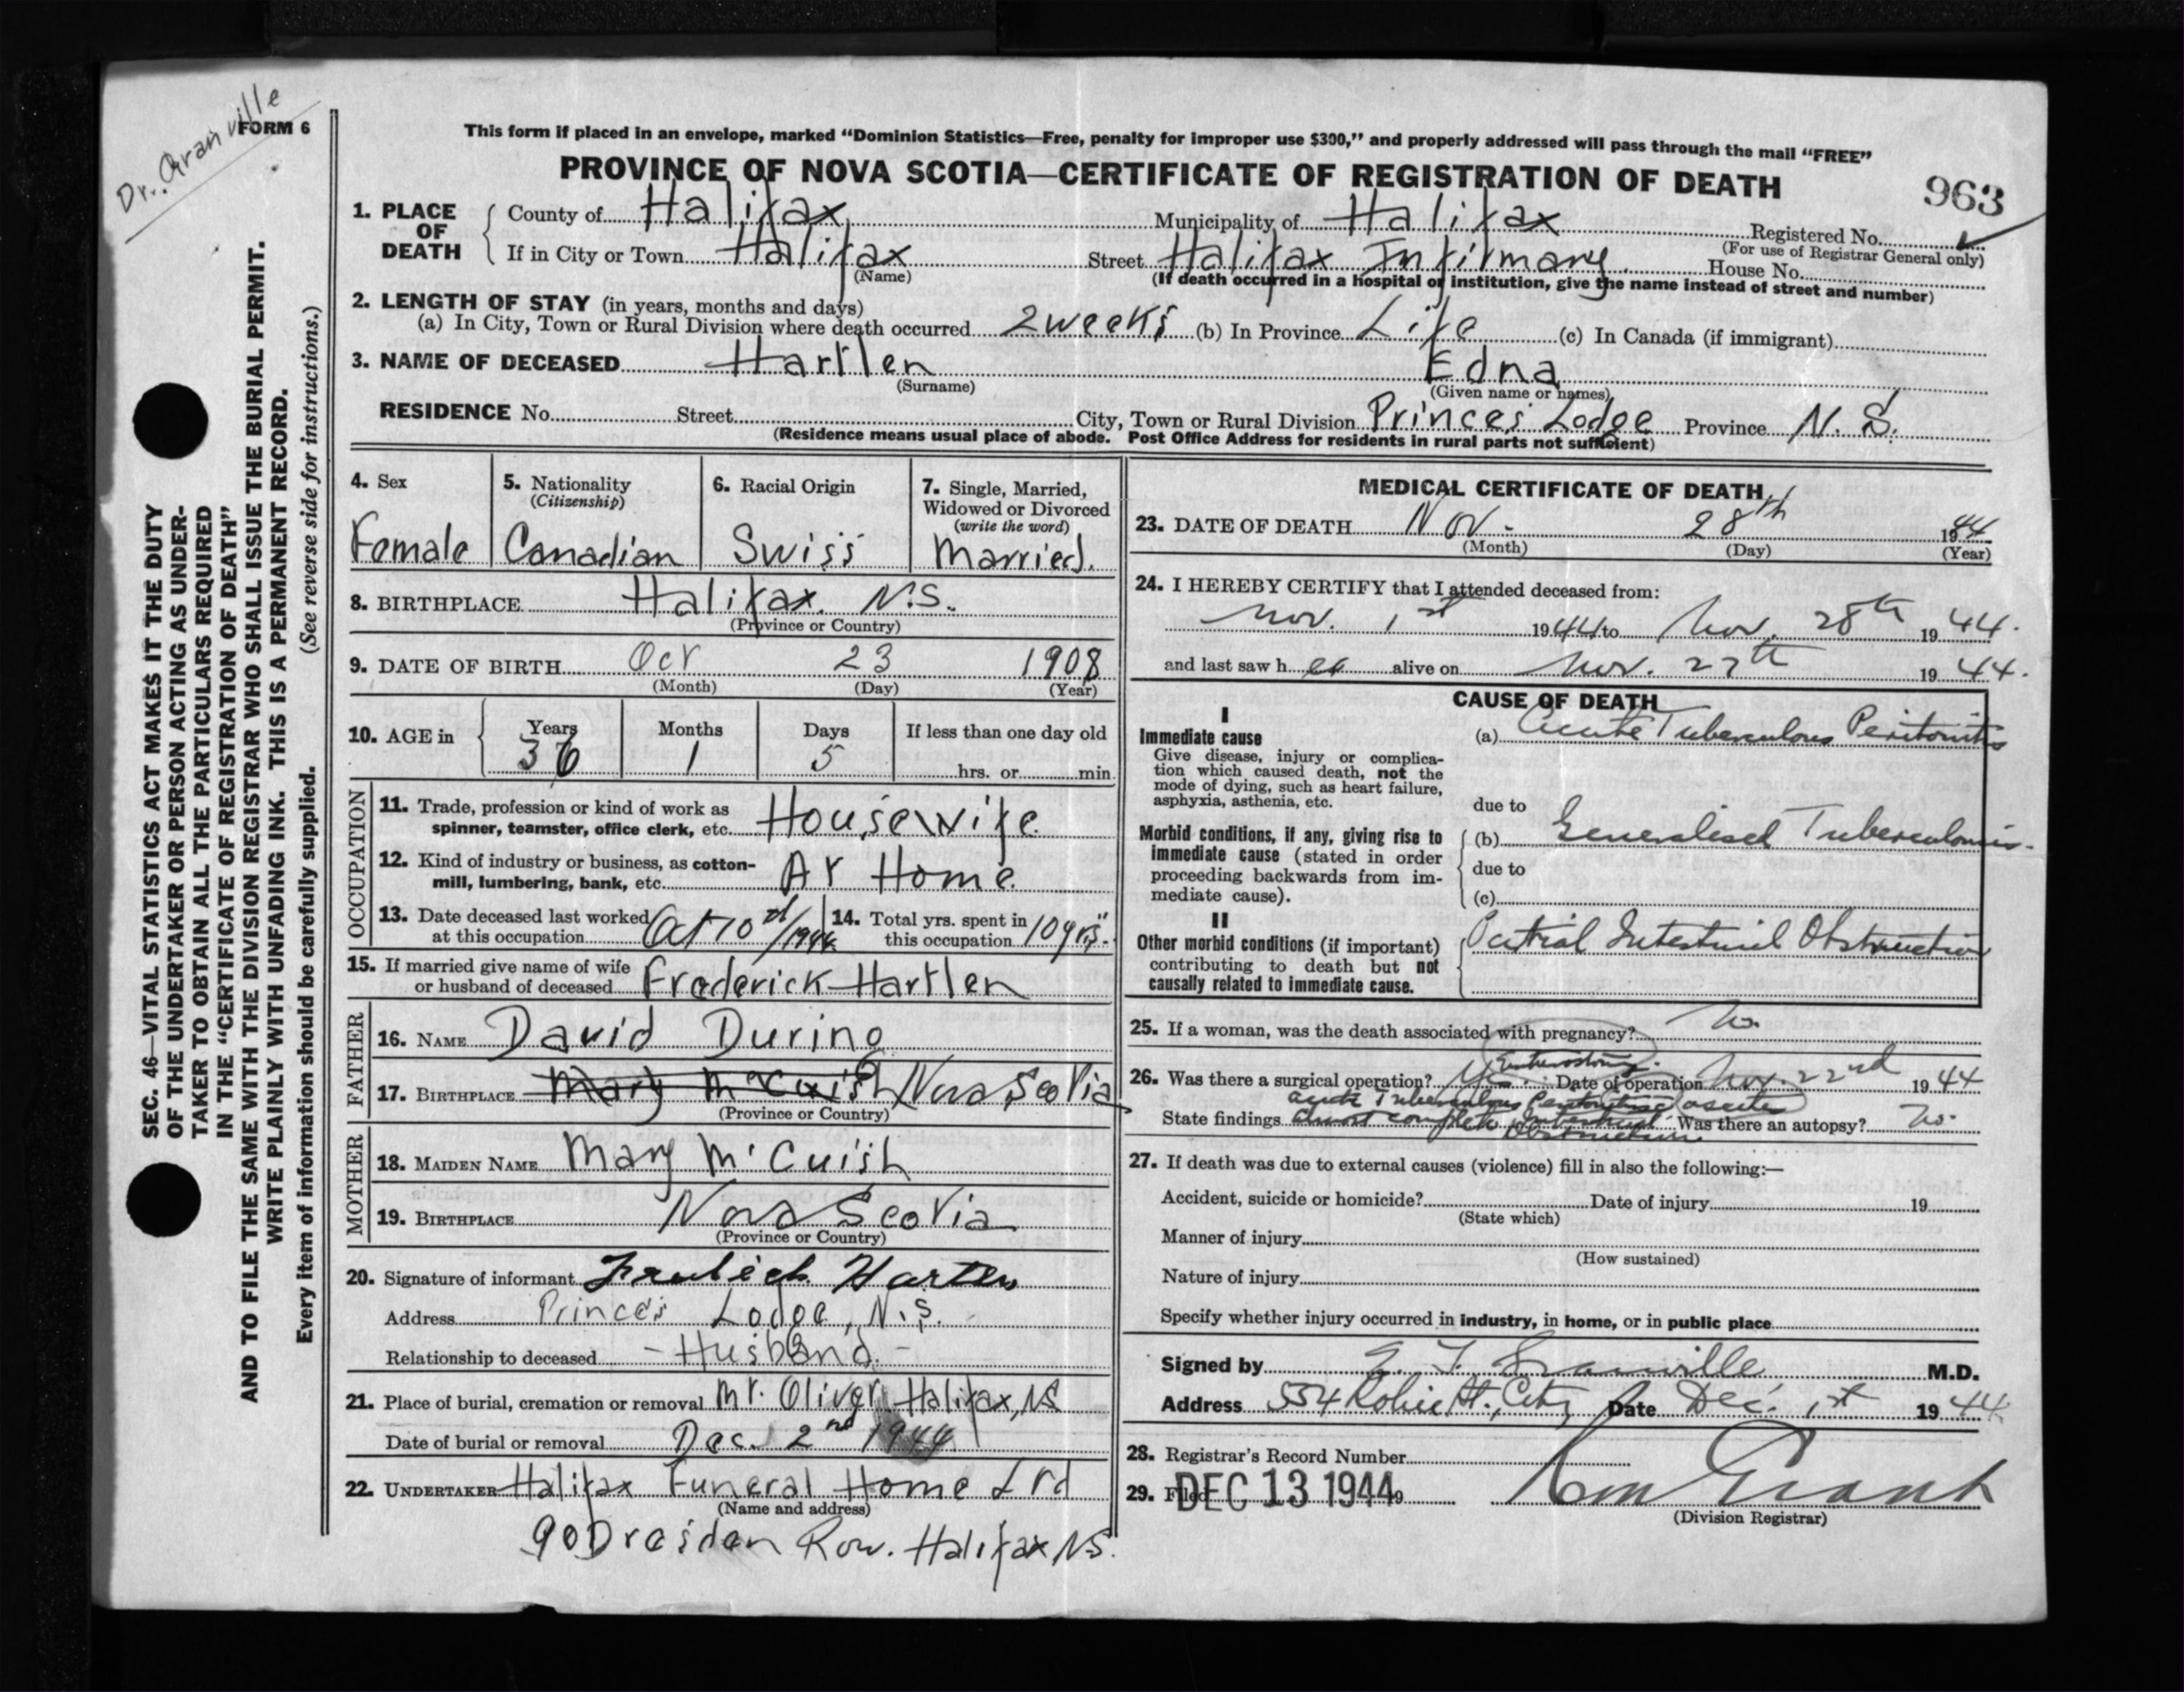 Dr. Granville
FORM 6
This form if placed in an envelope, marked “Dominion Statistics—Free, penalty for improper use $300,” and properly addressed will pass through the mail “FREE”
PROVINCE OF NOVA SCOTIA—CERTIFICATE OF REGISTRATION OF DEATH
963
1. PLACE OF DEATH
County of Halifax Municipality of Halifax Registered No.
(For use of Registrar General only)
If in City or Town Halifax Street Halifax Infirmary House No.
(Name) (If death occurred in a hospital or institution, give the name instead of street and number)
2. LENGTH OF STAY (in years, months and days)
(a) In City, Town or Rural Division where death occurred 2 weeks (b) In Province Life (c) In Canada (if immigrant)
3. NAME OF DECEASED Hartlen Edna
(Surname) (Given name or names)
RESIDENCE No. Street City, Town or Rural Division Princes Lodge Province N. S.
(Residence means usual place of abode. Post Office Address for residents in rural parts not sufficient)
SEC. 46—VITAL STATISTICS ACT MAKES IT THE DUTY
OF THE UNDERTAKER OR PERSON ACTING AS UNDER-
TAKER TO OBTAIN ALL THE PARTICULARS REQUIRED
IN THE “CERTIFICATE OF REGISTRATION OF DEATH”
AND TO FILE THE SAME WITH THE DIVISION REGISTRAR WHO SHALL ISSUE THE BURIAL PERMIT.
WRITE PLAINLY WITH UNFADING INK. THIS IS A PERMANENT RECORD.
Every item of information should be carefully supplied. (See reverse side for instructions.)
4. Sex
Female
5. Nationality
(Citizenship)
Canadian
6. Racial Origin
Swiss
7. Single, Married,
Widowed or Divorced
(write the word)
Married.
8. BIRTHPLACE Halifax. N.S.
(Province or Country)
9. DATE OF BIRTH Oct 23 1908
(Month) (Day) (Year)
10. AGE in Years Months Days If less than one day old
36 1 5 hrs. or min.
OCCUPATION
11. Trade, profession or kind of work as
spinner, teamster, office clerk, etc. Housewife
12. Kind of industry or business, as cotton-
mill, lumbering, bank, etc. At Home
13. Date deceased last worked
at this occupation Oct 10th/1944
14. Total yrs. spent in
this occupation 10 yrs.
15. If married give name of wife
or husband of deceased Frederick Hartlen
FATHER
16. NAME David During
17. BIRTHPLACE Mary McCuish Nova Scotia
(Province or Country)
MOTHER
18. MAIDEN NAME Mary McCuish
19. BIRTHPLACE Nova Scotia
(Province or Country)
20. Signature of informant Hartlen
Address Princes Lodge, N.S.
Relationship to deceased - Husband. -
21. Place of burial, cremation or removal Mt. Olivet Halifax, NS
Date of burial or removal Dec. 2nd 1944
22. UNDERTAKER Halifax Funeral Home Ltd
(Name and address)
90 Dresden Row. Halifax NS.
MEDICAL CERTIFICATE OF DEATH
23. DATE OF DEATH Nov. 28th 1944
(Month) (Day) (Year)
24. I HEREBY CERTIFY that I attended deceased from:
Nov. 1st 1944 to Nov. 28th 1944.
and last saw her alive on Nov. 27th 1944.
CAUSE OF DEATH
I
Immediate cause
Give disease, injury or complica-
tion which caused death, not the
mode of dying, such as heart failure,
asphyxia, asthenia, etc.
(a) Acute Tuberculous Peritonitis
due to
Morbid conditions, if any, giving rise to
immediate cause (stated in order
proceeding backwards from im-
mediate cause).
(b) Generalised Tuberculosis.
due to
(c)
II
Other morbid conditions (if important)
contributing to death but not
causally related to immediate cause.
Partial Intestinal Obstruction
25. If a woman, was the death associated with pregnancy? No.
26. Was there a surgical operation? Yes. Enterostomy. Date of operation Nov. 22nd 1944
State findings acute Tuberculous Peritonitis ascites
almost complete Intestinal Obstruction. Was there an autopsy? No.
27. If death was due to external causes (violence) fill in also the following:—
Accident, suicide or homicide? Date of injury 19
(State which)
Manner of injury
(How sustained)
Nature of injury
Specify whether injury occurred in industry, in home, or in public place
Signed by E. F. Granville M.D.
Address 554 Robie St., City Date Dec. 1st 1944
28. Registrar's Record Number
29. Filed DEC 13 1944
(Division Registrar)